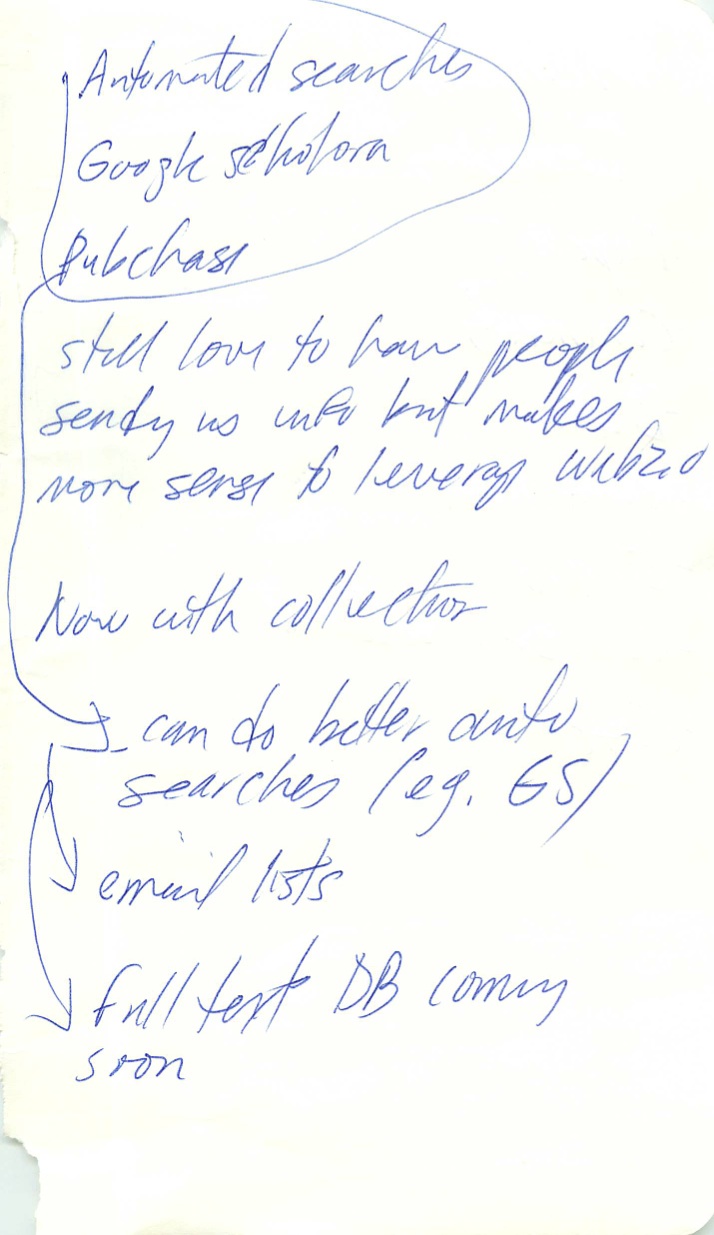 Automated searches
Google scholora
Pubchase
still love to have people
sending us info but makes
more sense to leverage web2.0
Now with collection
can do better auto
searches (eg. GS)
email lists
Full text DB coming
soon